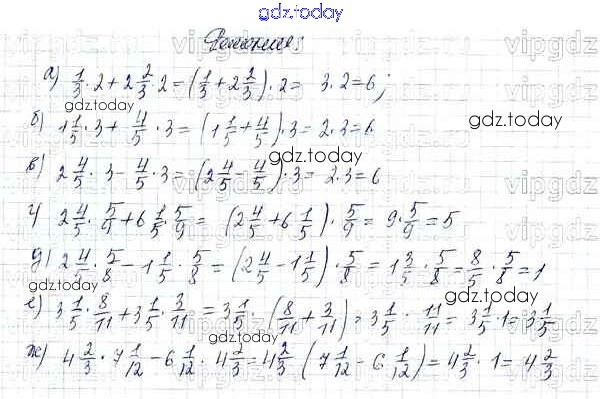 gdz.today
Решение:
vipgdz
а) 1/3 · 2 + 2 2/3 · 2 = (1/3 + 2 2/3) · 2 = 3 · 2 = 6;
gdz.today
б) 1 1/5 · 3 + 4/5 · 3 = (1 1/5 + 4/5) · 3 = 2 · 3 = 6
gdz.today
gdz.today
в) 2 4/5 · 3 - 4/5 · 3 = (2 4/5 - 4/5) · 3 = 2 · 3 = 6
г) 2 4/5 · 5/9 + 6 1/5 · 5/9 = (2 4/5 + 6 1/5) · 5/9 = 9 · 5/9 = 5
д) 2 4/5 · 5/8 - 1 1/5 · 5/8 = (2 4/5 - 1 1/5) · 5/8 = 1 3/5 · 5/8 = 8/5 · 5/8 = 1
gdz.today
gdz.today
е) 3 1/5 · 8/11 + 3 1/5 · 3/11 = 3 1/5 · (8/11 + 3/11) = 3 1/5 · 11/11 = 3 1/5 · 1 = 3 1/5
ж) 4 2/3 · 7 1/12 - 6 1/12 · 4 2/3 = 4 2/3 (7 1/12 - 6 1/12) = 4 2/3 · 1 = 4 2/3
gdz.today